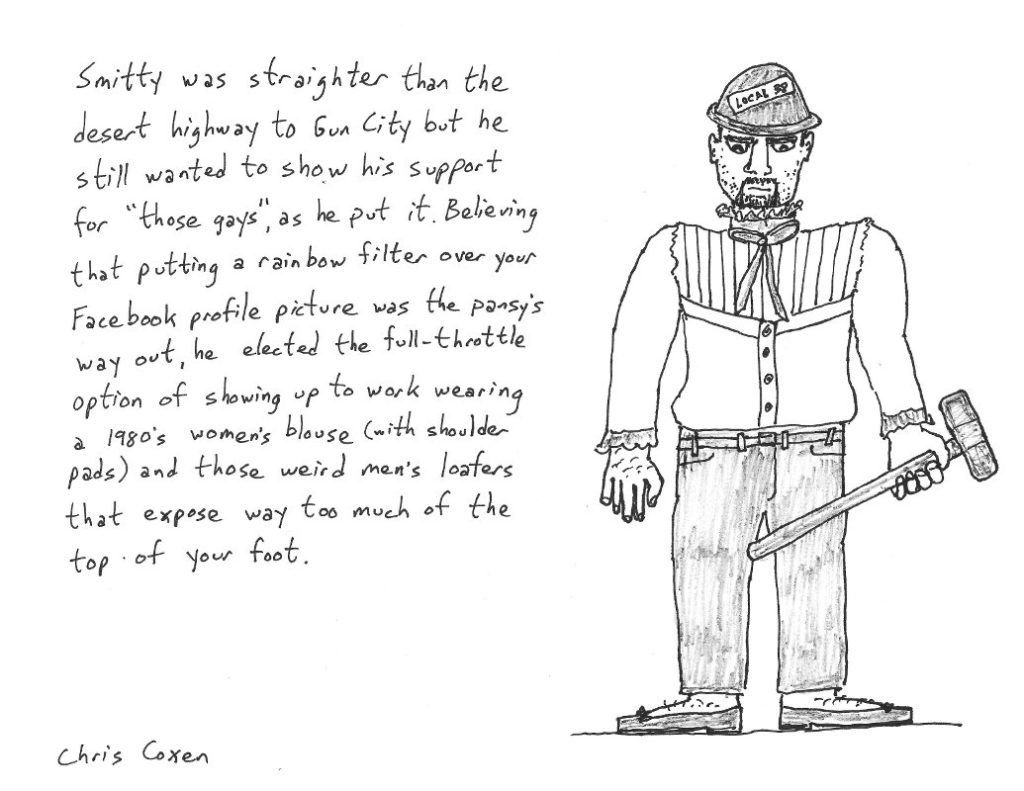 Smitty was straighter than the
desert highway to Gun City but he
still wanted to show his support
for "those gays", as he put it. Believing
that putting a rainbow filter over your
Facebook profile picture was the pansy's
way out, he elected the full-throttle
option of showing up to work wearing
a 1980's women's blouse (with shoulder
pads) and those weird men's loafers
that expose way too much of the
top of your foot.
Chris Coxen
LOCAL